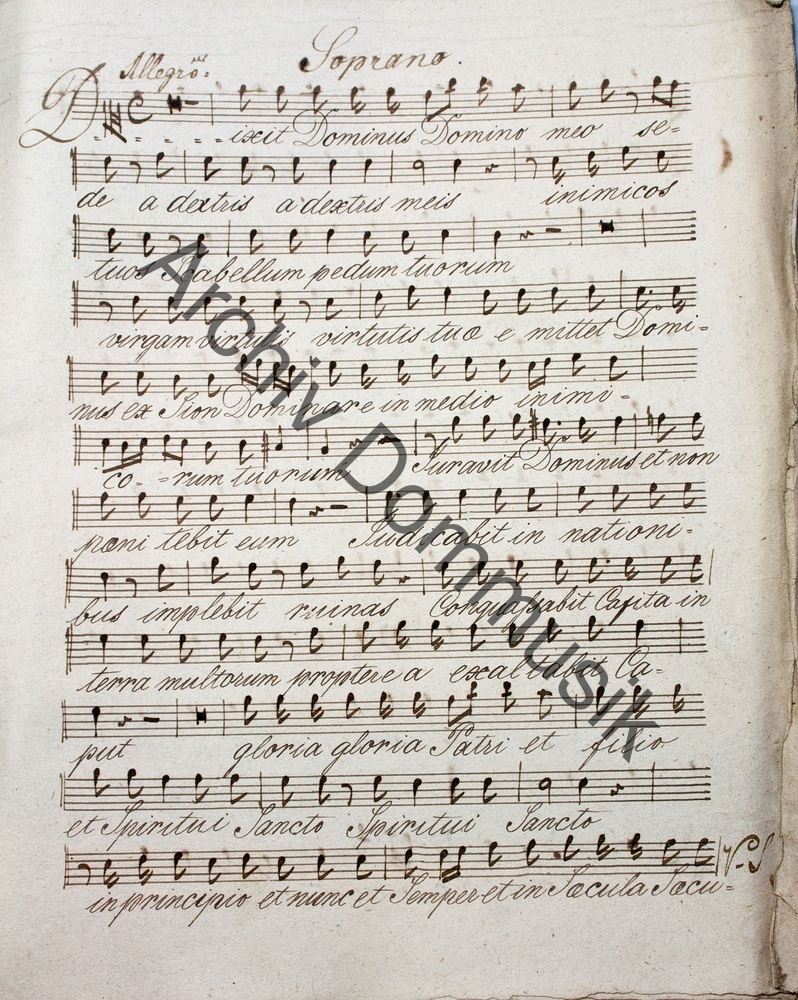 Soprano.
Allegro:
Dixit Dominus Domino meo se=
de a dextris a dextris meis inimicos
tuos Scabellum pedum tuorum
virgam virtutis virtutis tuæ e mittet Domi=
nus ex Sion Dominare in medio inimi=
co- =rum tuorum Juravit Dominus et non
pæni tebit eum Judicabit in nationi=
bus implebit ruinas Conquassabit Capita in
terra multorum proptere a exaltabit Ca=
put gloria gloria Patri et filio
et Spiritui Sancto Spiritui Sancto
in principio et nunc et Semper et in Sæcula Sæcu=
V. S
Archiv Dommusik